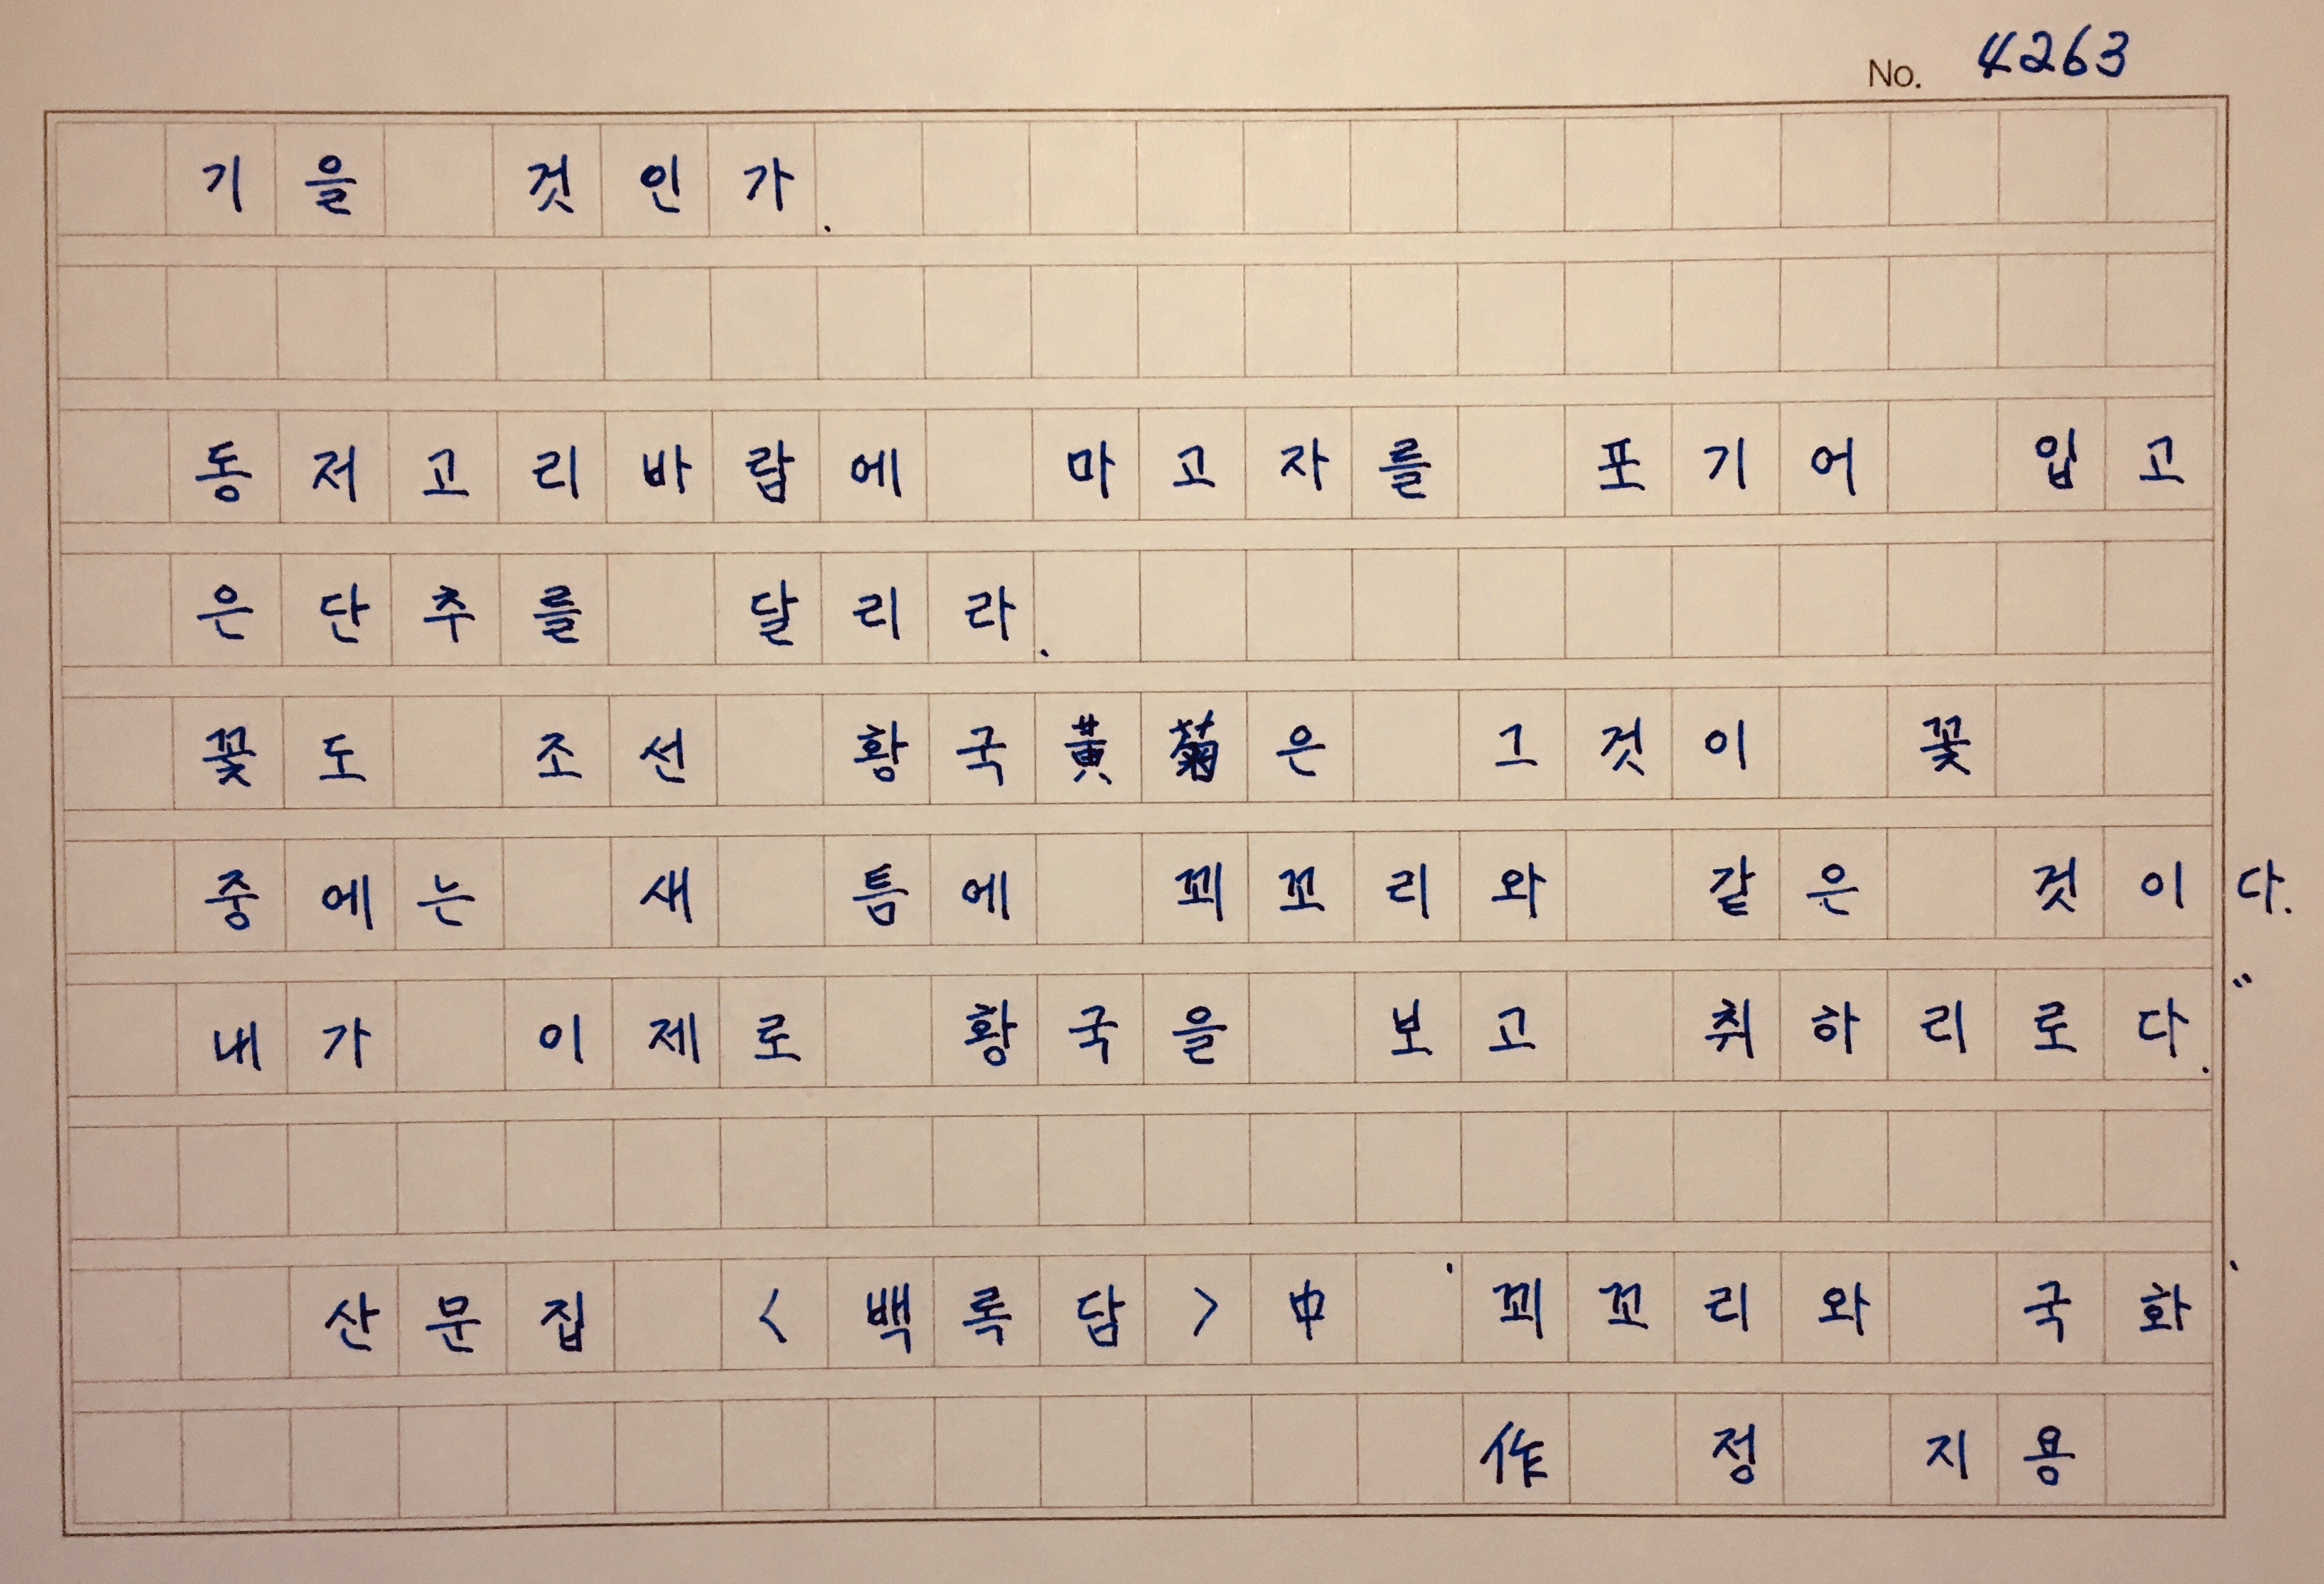 No. 4263
기을 것인가.
동저고리바람에 마고자를 포기어 입고
은단추를 달리라.
꽃도 조선 황국黃菊은 그것이 꽃
중에는 새 틈에 꾀꼬리와 같은 것이다.
내가 이제로 황국을 보고 취하리로다.”
산문집 <백록담>中 '꾀꼬리와 국화'
作 정 지용